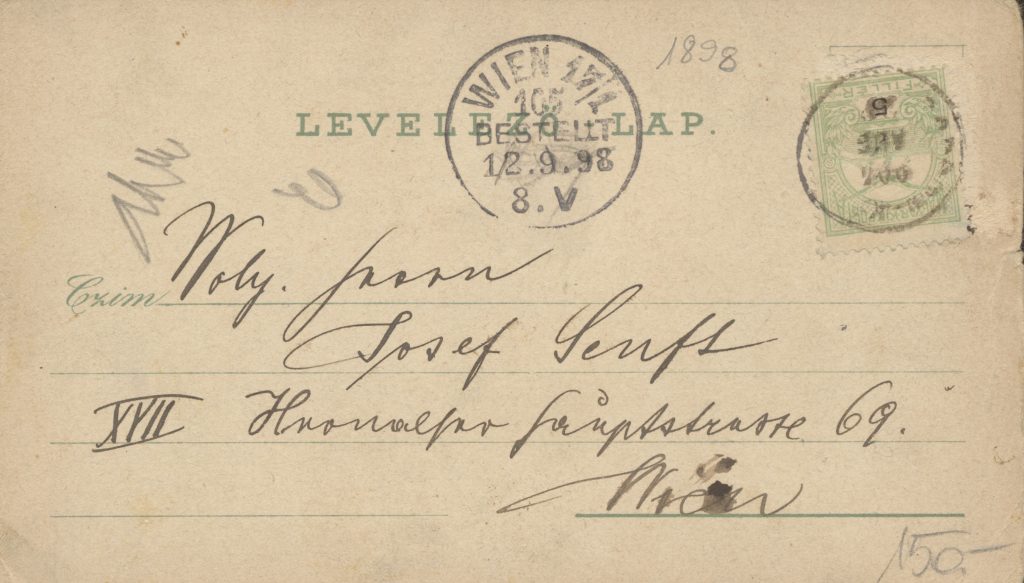 1898
LEVELEZŐ LAP.
WIEN 17/1
105
BESTELLT
12.9.98
8.V
FILLER
Czim Wolg. Herrn
Josef Senft
XVII Hernalser Hauptstrasse 69.
Wien
150.-